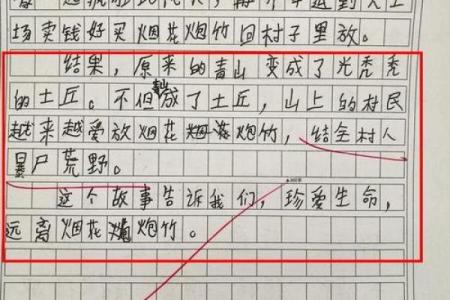 场卖钱好买烟花炮竹回村子里放。
结果，原来的青山变成了光秃秃
的土丘。不但变成了土丘，山上的村民
越来越爱放烟花炮竹，结全村人
暴尸荒野。
这个故事告诉我们，珍爱生命，
远离烟花炮竹。